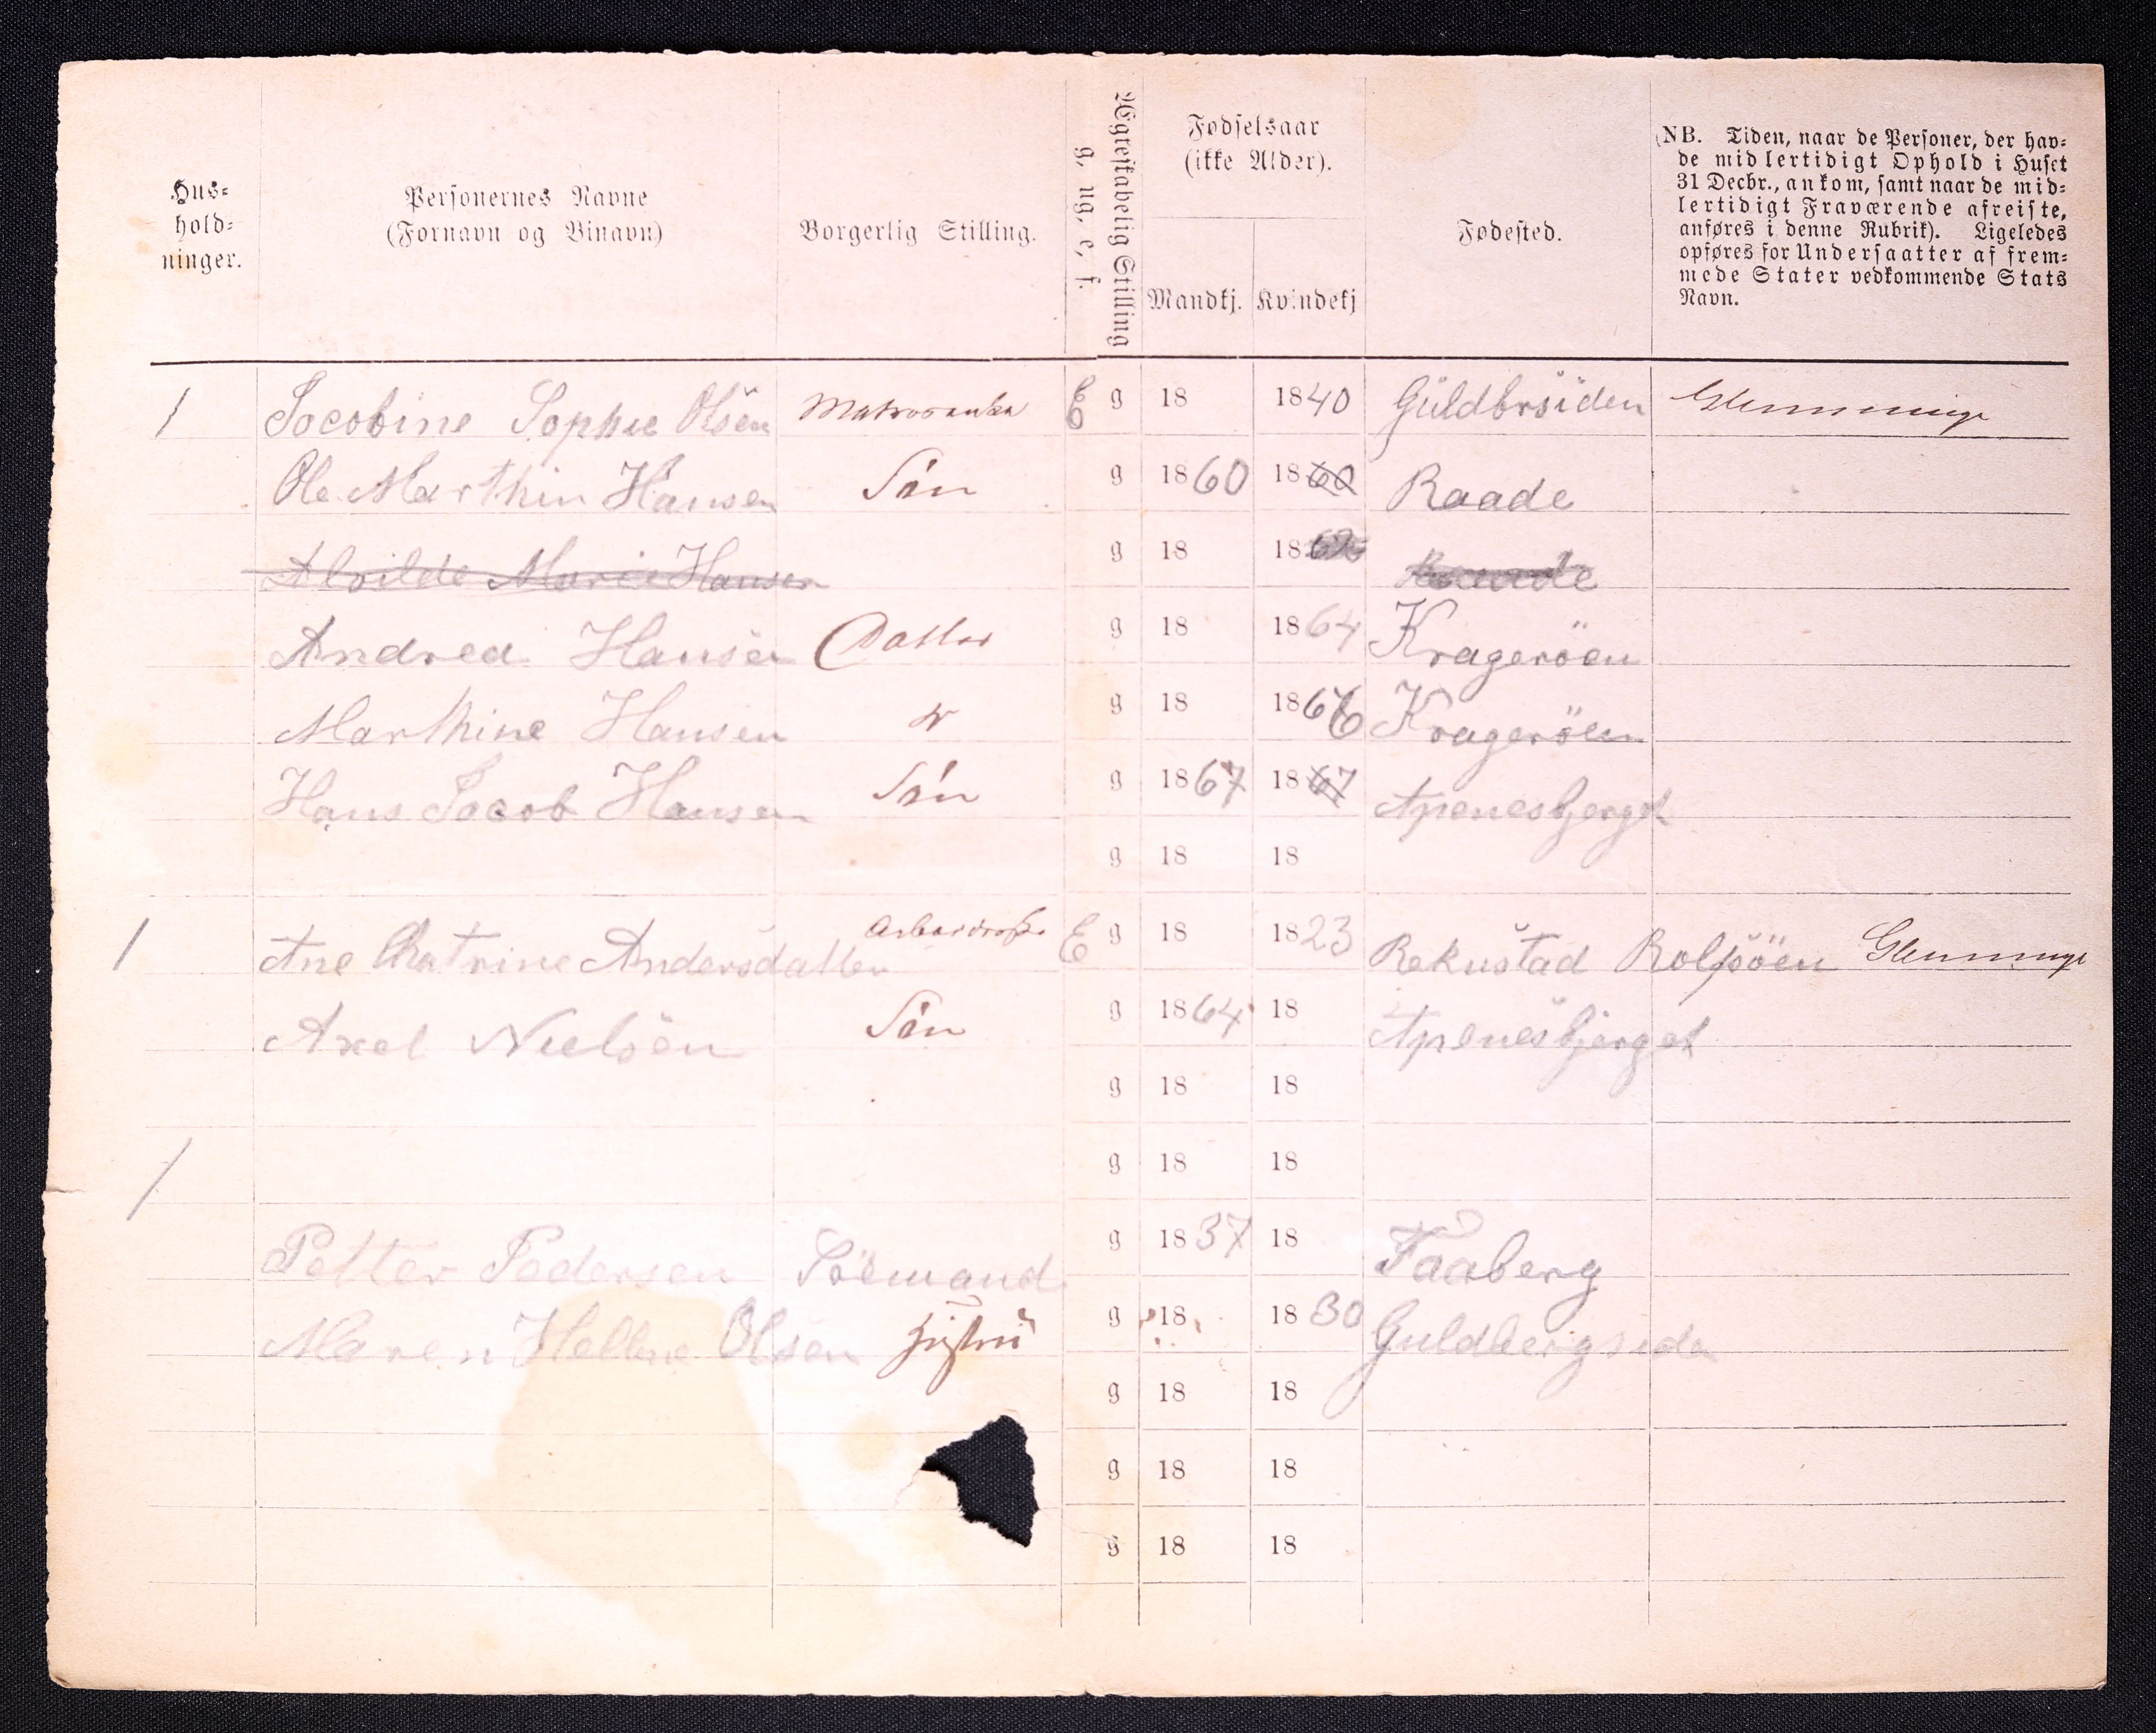 Hus-
hold-
ninger.
Personernes Navne
(Fornavn og Binavn)
Borgerlig Stilling.
Ægteskabelig Stilling
g, ug, e, f.
Fødselsaar
(ikke Alder).
Mandkj. Kvindekj
Fødested.
(NB. Tiden, naar de Personer, der hav-
de midlertidigt Ophold i Huset
31 Decbr., ankom, samt naar de mid-
lertidigt Fraværende afreiste,
anføres i denne Rubrik). Ligeledes
opføres for Undersaatter af frem-
mede Stater vedkommende Stats
Navn.
1 Jocobine Sophie Olsen Matrosenke E g 18 1840 Guldbrsiden Glemminge
Ole Marthin Hansen Sön g 1860 1860 Raade
Alvilde Marie Hansen g 18 1862 Raade
Andrea Hansen Datter g 18 1864 Krageröen
Marthine Hansen g 18 1866 Krageröen
Hans Jocob Hansen Sön g 1867 1867 Apenesbjerget
g 18 18
1 Ane Chatrine Andersdatter E g 18 1823 Rekustad Rolfsöen Glemminge
Axel Nielsen Sön g 1864 18 Apenesbjerget
g 18 18
1 g 18 18
Petter Pedersen Söemand g 1837 18 Faaberg
Maren Hellene Olsen Hustru g 18 1830 Guldbergsiden
g 18 18
g 18 18
g 18 18